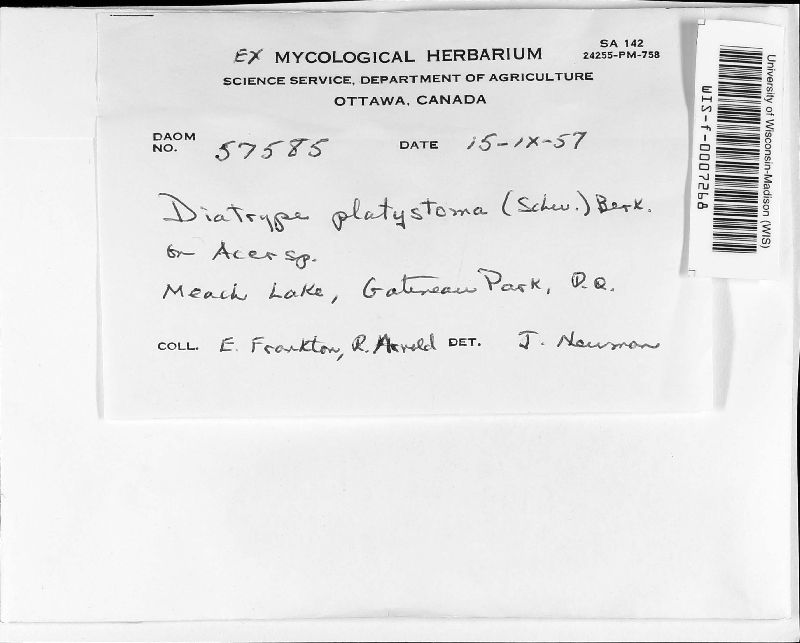 EX MYCOLOGICAL HERBARIUM
SA 142
24255-PM-758
SCIENCE SERVICE, DEPARTMENT OF AGRICULTURE
OTTAWA, CANADA
DAOM NO. 57585 DATE 15-IX-57
Diatrype platystoma (Schw.) Berk.
on Acer sp.
Meach Lake, Gatineau Park, P.Q.
COLL. E. Frankton, R. Arnold DET. J. Newman
University of Wisconsin-Madison (WIS)
WIS-f-0007268